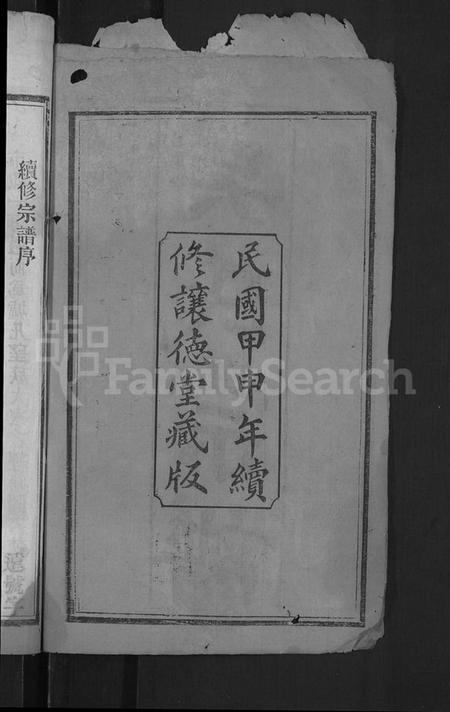 民國甲申年續
修讓德堂藏版
續修宗譜序
FamilySearch